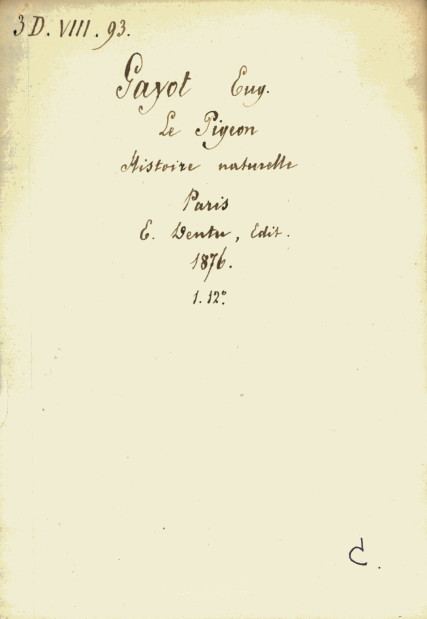 3 D. VIII. 93.
Gayot Eug.
Le Pigeon
Histoire naturelle
Paris
E. Dentu, Edit.
1876.
1. 12°
C.